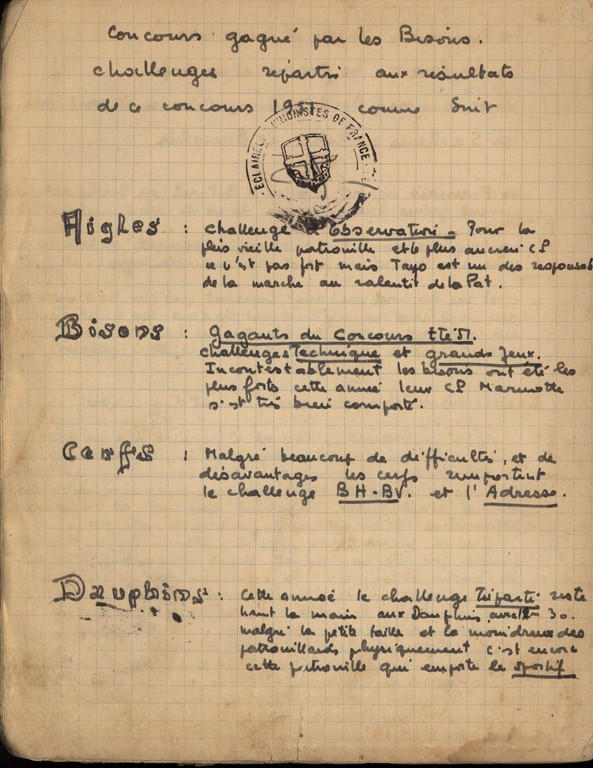 Concours gagné par les Bisons.
challenges répartis aux résultats
de ce concours 1951 comme suit
ECLAIREURS UNIONISTES DE FRANCE
Aigles : challenge d'observation. Pour la
plus vieille patrouille et le plus ancien CP
ce n'est pas fort mais Tayo est un des responsables
de la marche au ralenti de la Pat.
Bisons : gagants du Concours Eté 51.
challenges Technique et grands Jeux.
Incontestablement les bisons ont été les
plus forts cette année leur CP Marmotte
s'est très bien comporté.
Cerfs : Malgré beaucoup de difficultés, et de
désavantages les cerfs remportent
le challenge BH-BV. et l'Adresse.
Dauphins : Cette année le challenge triparti reste
dans la main aux Dauphins 30.
malgré la petite taille et la des
patrouillards physiquement c'est encore
cette patrouille qui emporte le sportif